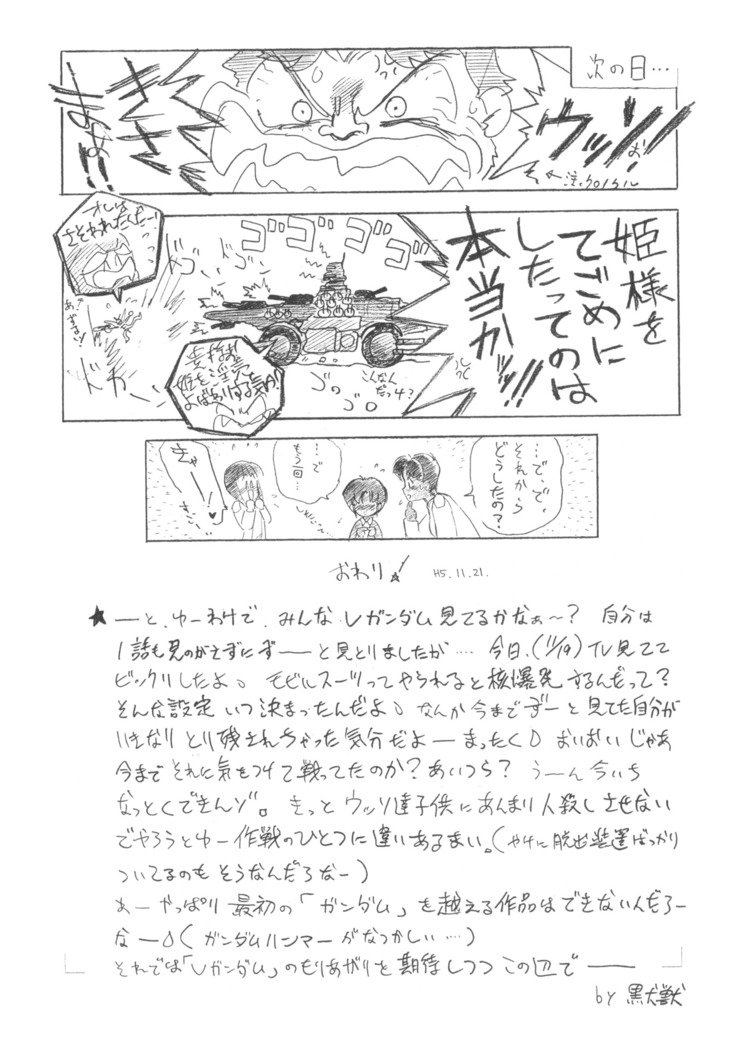 次の日…
ウッソ!
お!
きさまぁ!!
注・クロノクル
姫様を
てごめに
したってのは
本当かッ!!
ゴゴゴゴ
オレは
さそわれたんだー!
ドカー
ゴゴゴ
こんなん
だっけ?
…で、で、
それから
どうしたの?
…で
もう一回…
きゃー!♥
おわり! H5.11.21.
★ーと、ゆーわけで、みんなVガンダム見てるかなぁ〜? 自分は
1話も見のがさずにずーーと見とりましたが…今日、(11/19) TV見てて
ビックリしたよ。モビルスーツってやられると核爆発するんだって?
そんな設定いつ決まったんだよ。なんか今までずーと見てた自分が
いきなりとり残されちゃった気分だよーまったく。おいおいじゃあ
今までそれに気をつけて戦ってたのか?あいつら? うーん今いち
なっとくできんゾ。きっとウッソ達子供にあんまり人殺しさせない
でやろうとゆー作戦のひとつに違いあるまい。(やけに脱出装置ばっかり
ついてるのもそうなんだろなー)
あーやっぱり最初の「ガンダム」を越える作品はできないんだろー
なー(ガンダムハンマーがなつかしい…)
それでは「Vガンダム」のもりあがりを期待しつつこの辺でーー
by 黒犬獣